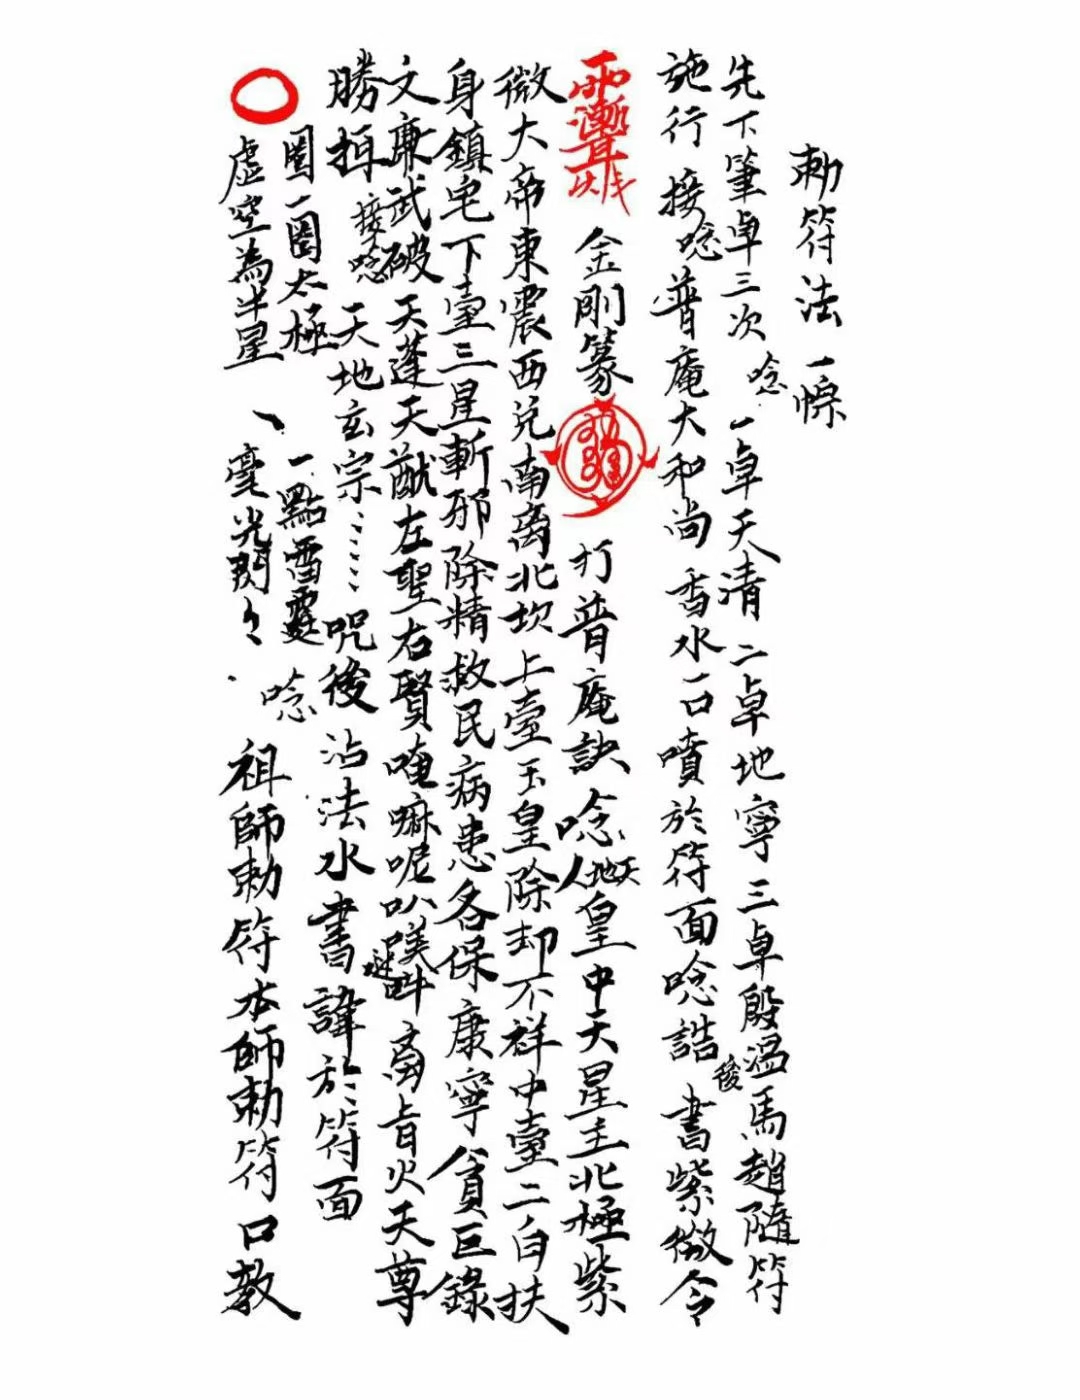 勅符法一條
先下筆卓三次唸一卓天清二卓地寧三卓殷溫馬趙隨符
施行接唸普庵大和尚香水一口噴於符面唸誥後書紫微令
金剛篆打普庵訣唸天地人皇中天星主北極紫
微大帝東震西兌南离北坎上臺玉皇除却不祥中臺二白扶
身鎮宅下臺三星斬邪除精救民病患各保康寧貪巨錄
文廉武破天蓬天猷左聖右賢唵嘛呢叭㗭吽离旨火天尊
勝接唸天地玄宗……咒後沾法水書諱於符面
圈一圈太極一點雷霆唸
虛空為半星丶毫光閃々祖師勅符本師勅符口教